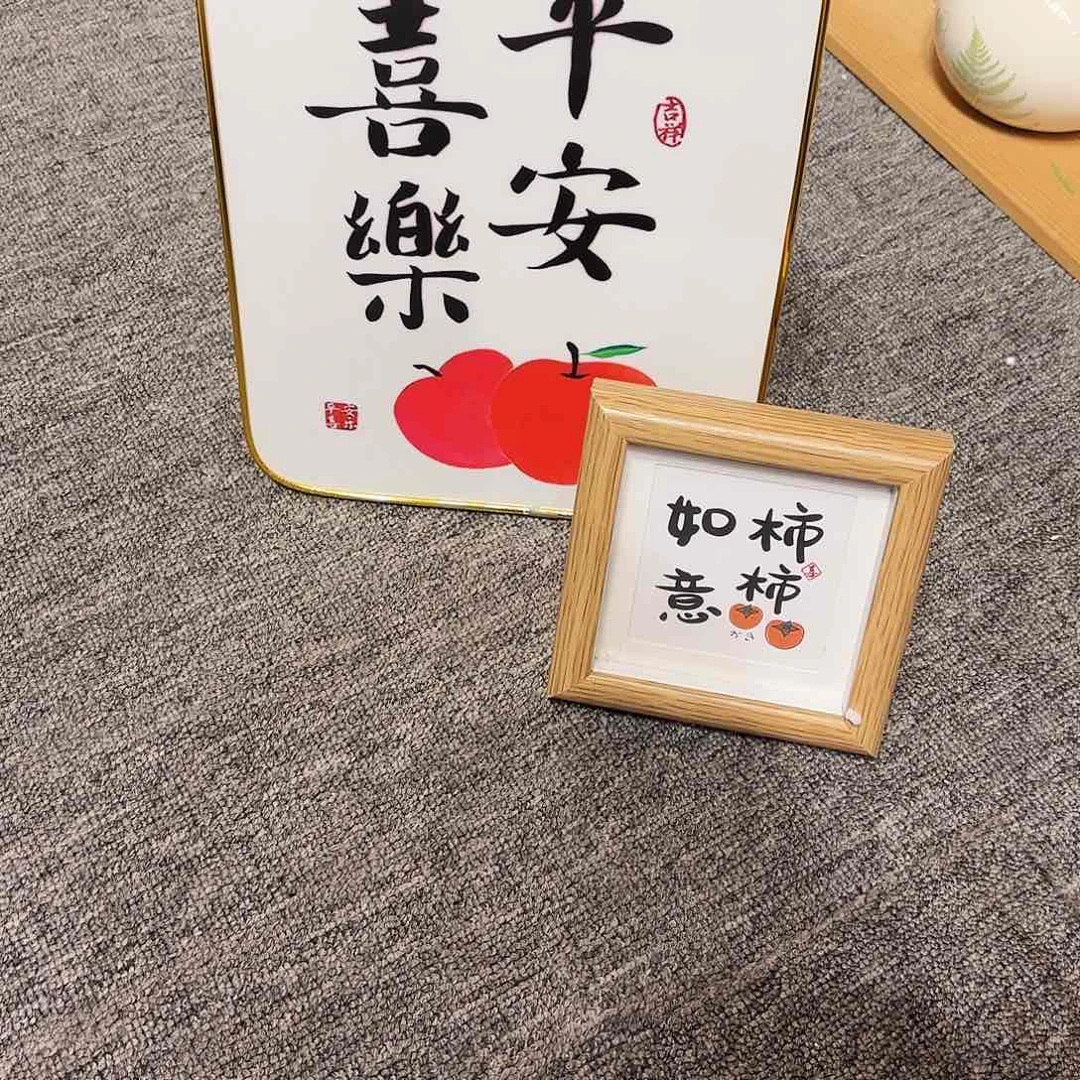 平安
喜樂
吉祥
柿柿
如意